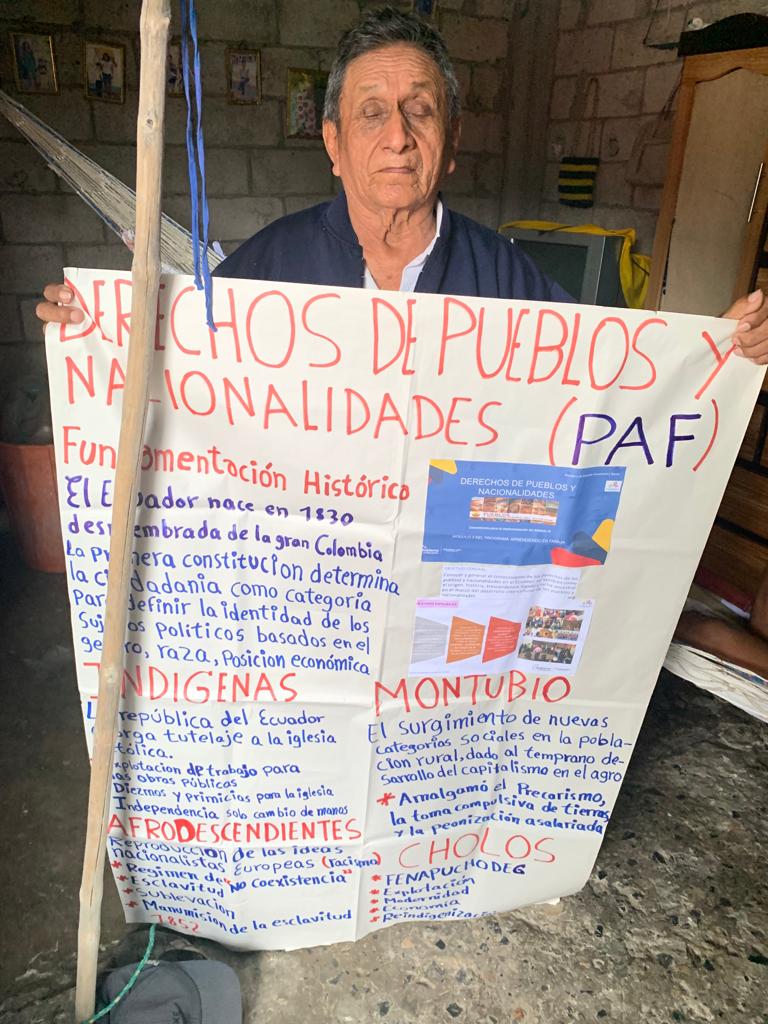 DERECHOS DE PUEBLOS Y
NACIONALIDADES (PAF)
Fundamentación Histórico
El Ecuador nace en 1830
desmembrada de la gran Colombia
La Primera constitucion determina
la ciudadania como categoría
Para definir la identidad de los
Sujetos Politicos basados en el
genero, raza, Posicion económica
INDIGENAS
república del Ecuador
otorga tutelaje a la iglesia
católica.
explotacion de trabajo para
las obras Públicas
Diezmos y Primicias para la iglesia
Independencia solo cambio de manos
AFRODESCENDIENTES
Reproducción de las ideas
nacionalistas Europeas (racismo)
* Regimen de "No coexistencia"
* Esclavitud
* Sublevación
* Manumision de la esclavitud
1852
DERECHOS DE PUEBLOS Y
NACIONALIDADES
PUEBLOS
MÓDULO 3 DEL PROGRAMA APRENDIENDO EN FAMILIA
OBJETIVO GENERAL
MONTUBIO
El surgimiento de nuevas
categorias sociales en la pobla-
cion rural, dado al temprano de-
sarrollo del capitalismo en el agro
* Amalgamó el Precarismo,
la toma compulsiva de tierras,
y la peonización asalariada
CHOLOS
* FENAPUCHODEG
* Explotación
* Modernidad
* Economia
* Reindigenización